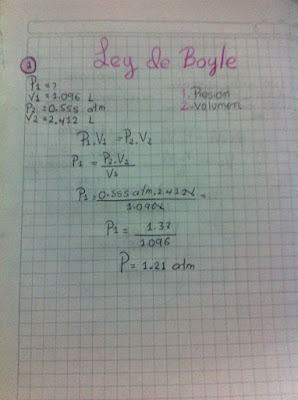 Ley de Boyle
1
P1 = ?
V1 = 1.096 L
P2 = 0.555 atm
V2 = 2.412 L
1. Presion
2. Volumen
P1.V1 = P2.V2
P1 = P2.V2
V1
P1 = 0.555 atm.2.412L =
1.096L
P1 = 1.33
1.096
P = 1.21 atm